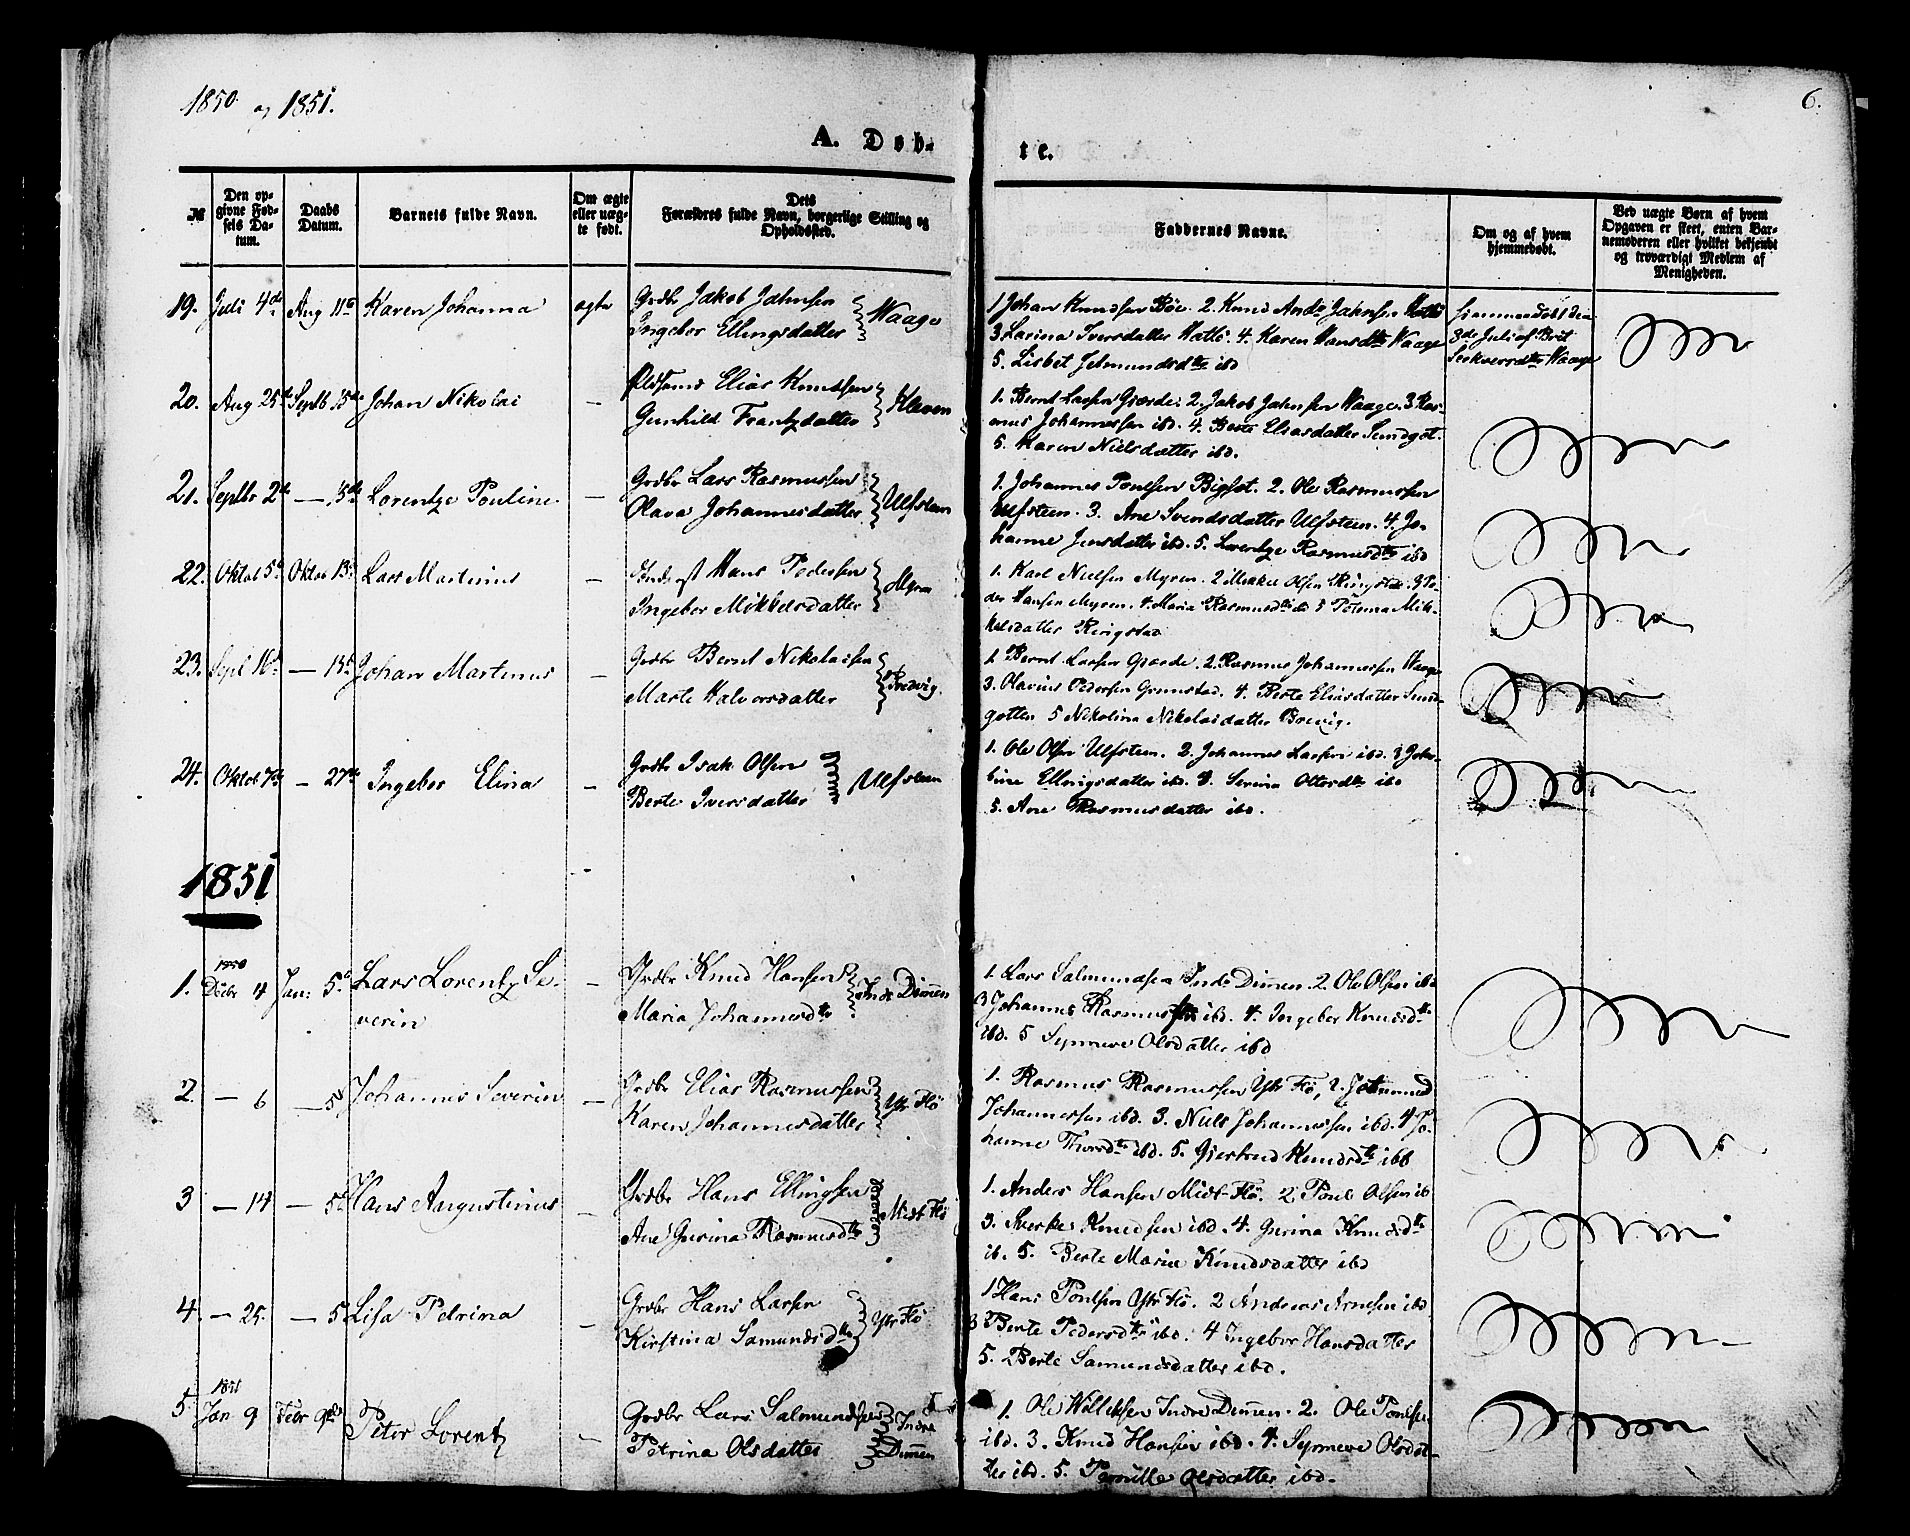 1850 og 1851.
6.
A. Døb-
te.
№
Den op-
givne Fød-
sels Da-
tum.
Daabs
Datum.
Barnets fulde Navn.
Om ægte
eller uæg-
te født.
Dets
Forældres fulde Navn, borgerlige Stilling og
Opholdssted.
Faddernes Navne.
Om og af hvem
hjemmedøbt.
Ved uægte Børn af hvem
Opgaven er skeet, enten Bar-
nemoderen eller hvilket bekjendt
og troværdigt Medlem af
Menigheden.
19. Juli 4de Aug 11te Karen Johanna ægte
Grdbr Jakob Jahnsen
Ingebor Ellingsdatter
Waage
1 Johan Knudsen Böe. 2. Knud Ands Jahnsen
3 Larina Iversdatter Hatlö. 4. Karen Hansdtr Waage
5. Lisbet Jetmundsdtr ibd
Hjemmedöbt den
8de Juli af Brit
Waage
20. Aug 25de Septb 15de Johan Nikolai —
Elias Knudsen
Gunhild Frantzdatter
Klaven
1. Bernt Larsen Gjærde. 2. Jakob Jahnsen Waage. 3 Ras-
mus Johannessen ibd. 4. Berte Eliasdatter Sundgot.
5. Karen Nielsdatter ibd.
21. Septbr 2de — 15de Lorentze Pouline —
Grdbr Lars Rasmussen
Olava Johannesdatter
Ulfsteen
1. Johannes Poulsen Bigset. 2. Ole Rasmussen
Ulfsteen. 3. Ane Svendsdatter Ulfsteen. 4. Jo-
hanne Jensdatter ibd. 5. Lorentze Rasmusdtr ibd
22. Oktob 5te Oktob 13de Lars Martinus —
Hans Pedersen
Ingebor Mikkelsdatter
Myren
1. Karl Nielsen Myren. 2 Mikkel Olsen Ringstad. 3 Pe-
der Hansen Myren. 4. Maria Rasmusdtr ibd 5 Mik-
kelsdatter Ringstad
23. Sept 16de — 13de Johan Martinus —
Grdbr Bernt Nikolaisen
Marte Halvorsdatter
Bredvig.
1. Bernt Larsen Gjærde. 2. Rasmus Johannessen Waage
3. Olavius Pedersen Grimstad. 4. Berte Eliasdatter Sund-
gotten 5 Nikolina Nikolaidatter Brevig.
24. Oktob 7de — 27de Ingebor Elina —
Grdbr Isak Olsen
Berte Iversdatter
Ulfsteen
1. Ole Olsen Ulfsteen. 2. Johannes Larsen ibd. 3 Jako-
bine Ellingsdatter ibd. 3. Serina Ottersdtr ibd
5. Ane Rasmusdatter ibd.
1851
1. 1850 Decbr 4 Jan: 5te Lars Lorentz Se- —
verin
Grdbr Knud Hansen
Maria Johannesdtr
Indr Dimmen
1. Lars Salmundsen Indr Dimmen. 2. Ole Olsen ibd
3 Johannes Rasmussen ibd. 4. Ingebor Knudsdtr
ibd. 5 Synneve Olsdatter ibd
2 — 6 — 5te Johannes Severin —
Grdbr Elias Rasmussen
Karen Johannesdatter
Ytr Flö
1. Rasmus Rasmussen Ytr Flö, 2. Jetmund
Johannessen ibd. 3. Niels Johannessen ibd. 4 Jo-
hanne Thorsdtr ibd. 5. Gjertrud Knudsdtr ibd
3 — 14 — 5te Hans Augustinus —
Grdbr Hans Ellingsen
Ane Gurina Rasmusdtr
Midt Flö
1. Anders Hansen Midt-Flö. 2 Poul Olsen ib
3. Sverke Knudsen ibd. 4. Gurina Knudsdtr
ib. 5. Berte Marie Knudsdatter ibd
4. — 25. — 5 Lisa Petrina —
Grdbr Hans Larsen
Kirstina Samundsdtr
Ytr Flö
1 Hans Poulsen Ytr Flö. 2 Andreas Arnesen ibd
3 Berte Pedersdtr ibd. 4 Ingebor Hansdatter
5. Berte Samundsdatter ibd.
5. 1851 Jan 9 Febr 9de Peter Lorentz —
Grdbr Lars Salmundsen
Petrina Olsdatter
Indre
Dimmen
1. Ole Indre Dimmen. 2. Ole Poulsen
ibd. 3. Knud Hansen ibd. 4. Synneve Olsdat-
ter ibd. 5. Pernille Olsdatter ibd.